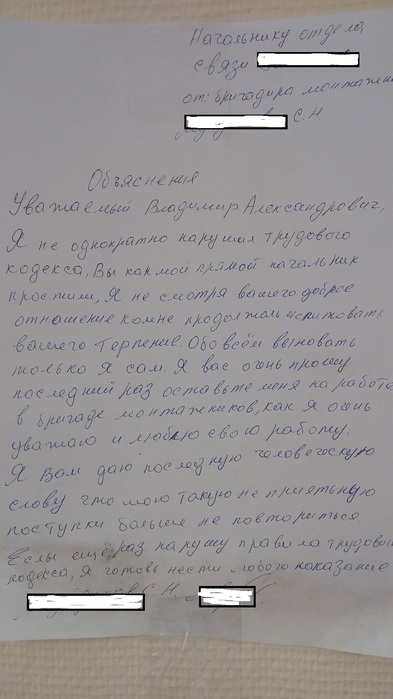 Начальнику отдела
связи
от: бригадира монтажени
С.Н
Объяснения
Уважаемый Владимир Александрович,
Я не однократно нарушил трудового
кодекса, Вы как мой прямой начальник
простили, Я не смотря вашего доброе
отношение комне продолжал испитовать
вашего Терпение. Обо всём виновать
только Я сам. Я вас очень прошу
последний раз оставьте меня на работе
в бригаде монтажников, как Я очень
уважаю и люблю свою работу.
Я Вам даю последную человеческую
слову что мою такую не приятьную
поступки больше не повториться.
Еслы ещё раз нарушу правила трудовой
кодекса, Я готовь нести любого наказание
С.Н.